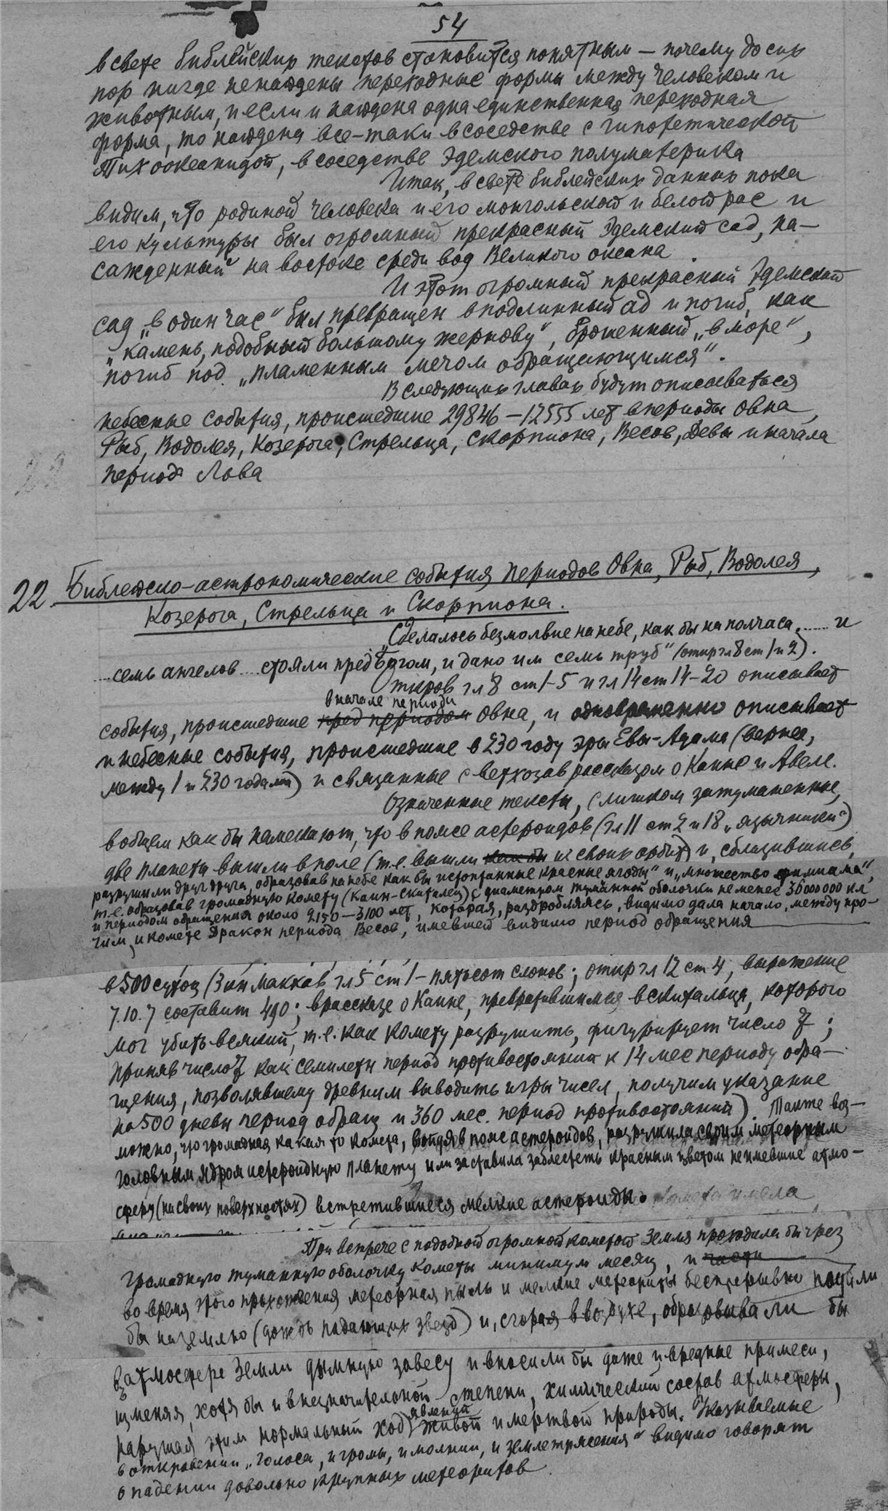 54
в свете библейских текстов становится понятным — почему до сих
пор нигде не найдены переходные формы между человеком и
животным, и если и найдена одна единственная переходная
форма, то найдена все-таки в соседстве с гипотетической
Тихоокеанидой, в соседстве Эдемского полуматерика
Итак, в свете библейских данных пока
видим, что родиной человека и его монгольской и белой рас и
его культуры был огромный прекрасный Эдемский сад, на-
сажденный на востоке среди вод Великого океана.
И этот огромный прекрасный Эдемский
сад „в один час" был превращен в подлинный ад и погиб, как
„камень, подобный большому жернову", брошенный „в море",
погиб под „пламенным мечом обращающимся".
В следующих главах будут описываться
небесные события, происшедшие 29846–12555 лет в периоды Овна,
Рыб, Водолея, Козерога, Стрельца, Скорпиона, Весов, Девы и начала
периода Льва
22. Библейско-астрономические события периодов Овна, Рыб, Водолея,
Козерога, Стрельца и Скорпиона.
„Сделалось безмолвие на небе, как бы на полчаса, ...... и
....семь ангелов ...стояли пред Богом, и дано им семь труб" (откр гл 8 ст 1 и 2).
Откров гл 8 ст 1-5 и гл 14 ст 14-20 описывает
в начале периода
события, происшедшие пред периодом Овна, и одновременно описывает
и небесные события, происшедшие в 230 году эры Евы-Адама (вернее,
между 1 и 230 годами) и связанные с ветхозав рассказом о Каине и Авеле.
Означенные тексты, слишком затуманенные,
в общем как бы намекают, что в поясе астероидов (гл 11 ст 2 и 18 „язычники")
две планеты вышли в поле (т.е. вышли как бы из своих орбит) и, сблизившись,
разрушили друг друга, образовав на небе как бы „истоптанные красные ягоды" и „множество фимиама",
т.е. образовав громадную комету (Каин-скиталец) с диаметром туманной оболочки не менее 30000000 кл
и периодом обращения около 2150–3100 лет, которая, раздробляясь, видимо дала начало, между про-
чим, и комете Дракон периода Весов, имевшей видимо период обращения
в 500 суток (3 кн Маккав гл 5 ст 1 – пятьсот слонов; откр гл 12 ст 4, выражение
7.10.7 составит 490; в рассказе о Каине, превратившимся в скитальца, которого
мог убить всякий, т.е. как комету разрушить, фигурирует число 7;
приняв число 7 как семилетн период противостояния к 14 мес периоду обра-
щения, позволявшему древним выводить игры чисел, получим указание
на 500 дневн период обращ и 360 мес. период противостояний). Также воз-
можно, что громадная какая то комета, войдя в пояс астероидов, разрушила своим метеорным
головным ядром астероидную планету или заставила заблестеть красным цветом не имевшие атмо-
сферу (на своих поверхностях) встретившиеся мелкие астероиды.
При встрече с подобной огромной кометой Земля проходила бы чрез
громадную туманную оболочку кометы минимум месяц, и части
во время этого прохождения метеорная пыль и мелкие метеориты беспрерывно падали
бы на землю (дождь падающих звезд) и, сгорая в воздухе, образовывали бы
в атмосфере Земли дымную завесу и вносили бы даже и вредные примеси,
изменяя, хотя бы и в незначительной степени, химический состав атмосферы,
нарушая этим нормальный ход явлений живой и мертвой природы. Указываемые
в откровении „голоса, и громы, и молнии, и землетрясения" видимо говорят
о падении довольно крупных метеоритов.